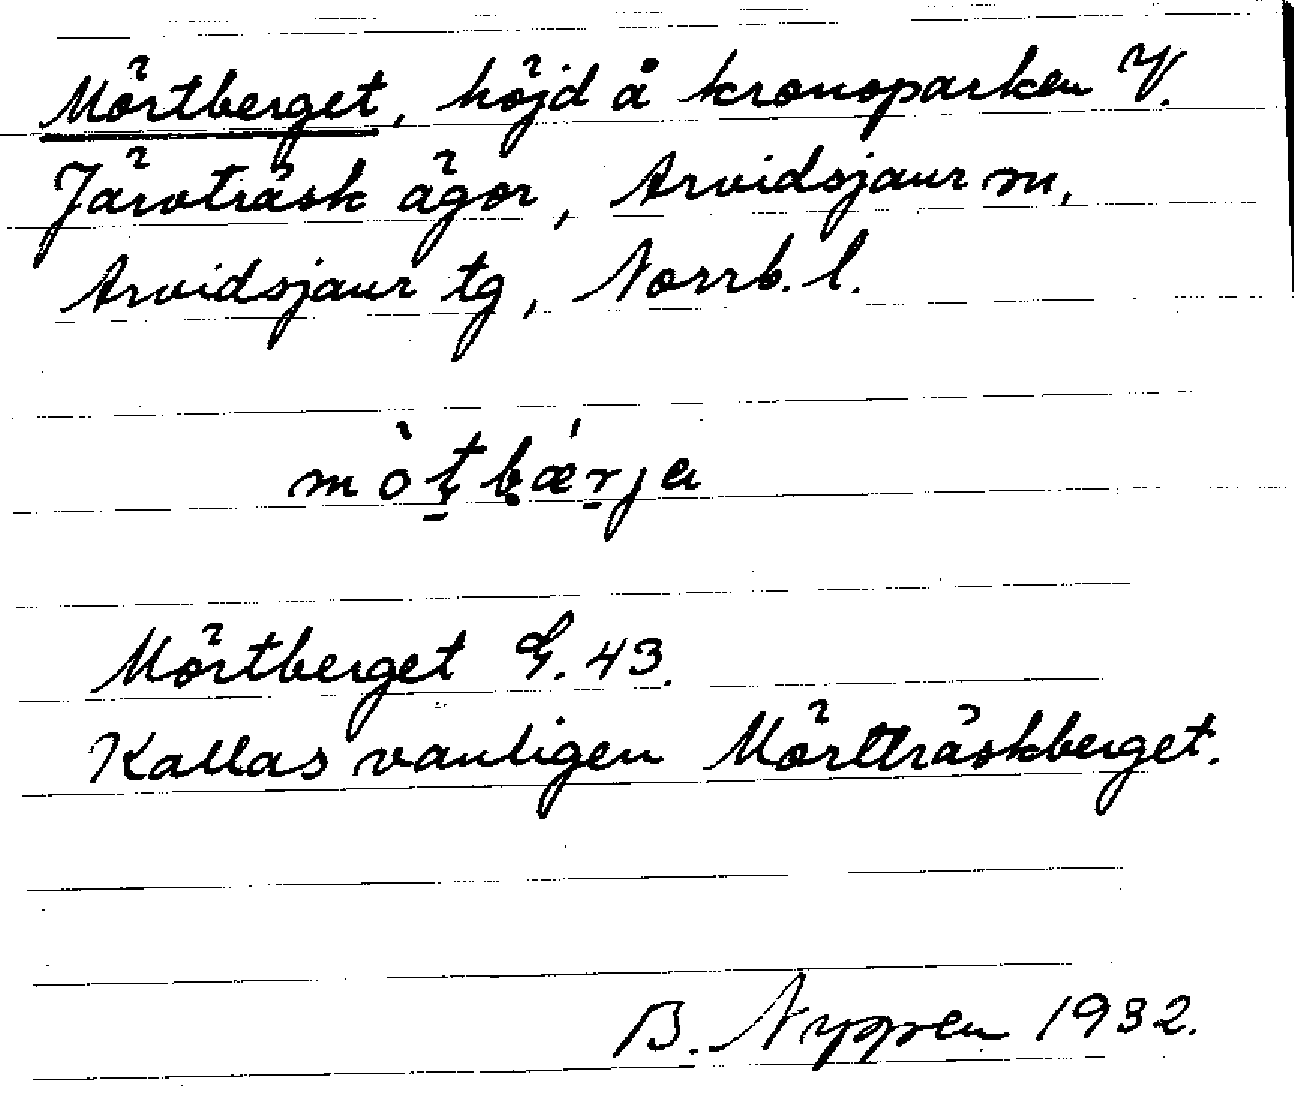 Mörtberget, höjd å kronoparken V.
Järvträsk ägor, Arvidsjaur sn,
Arvidsjaur tg, Norrb. l.
mòt̠bǽrja
Mörtberget G. 43.
Kallas vanligen Mörtträskberget.
B. Nyppen 1932.